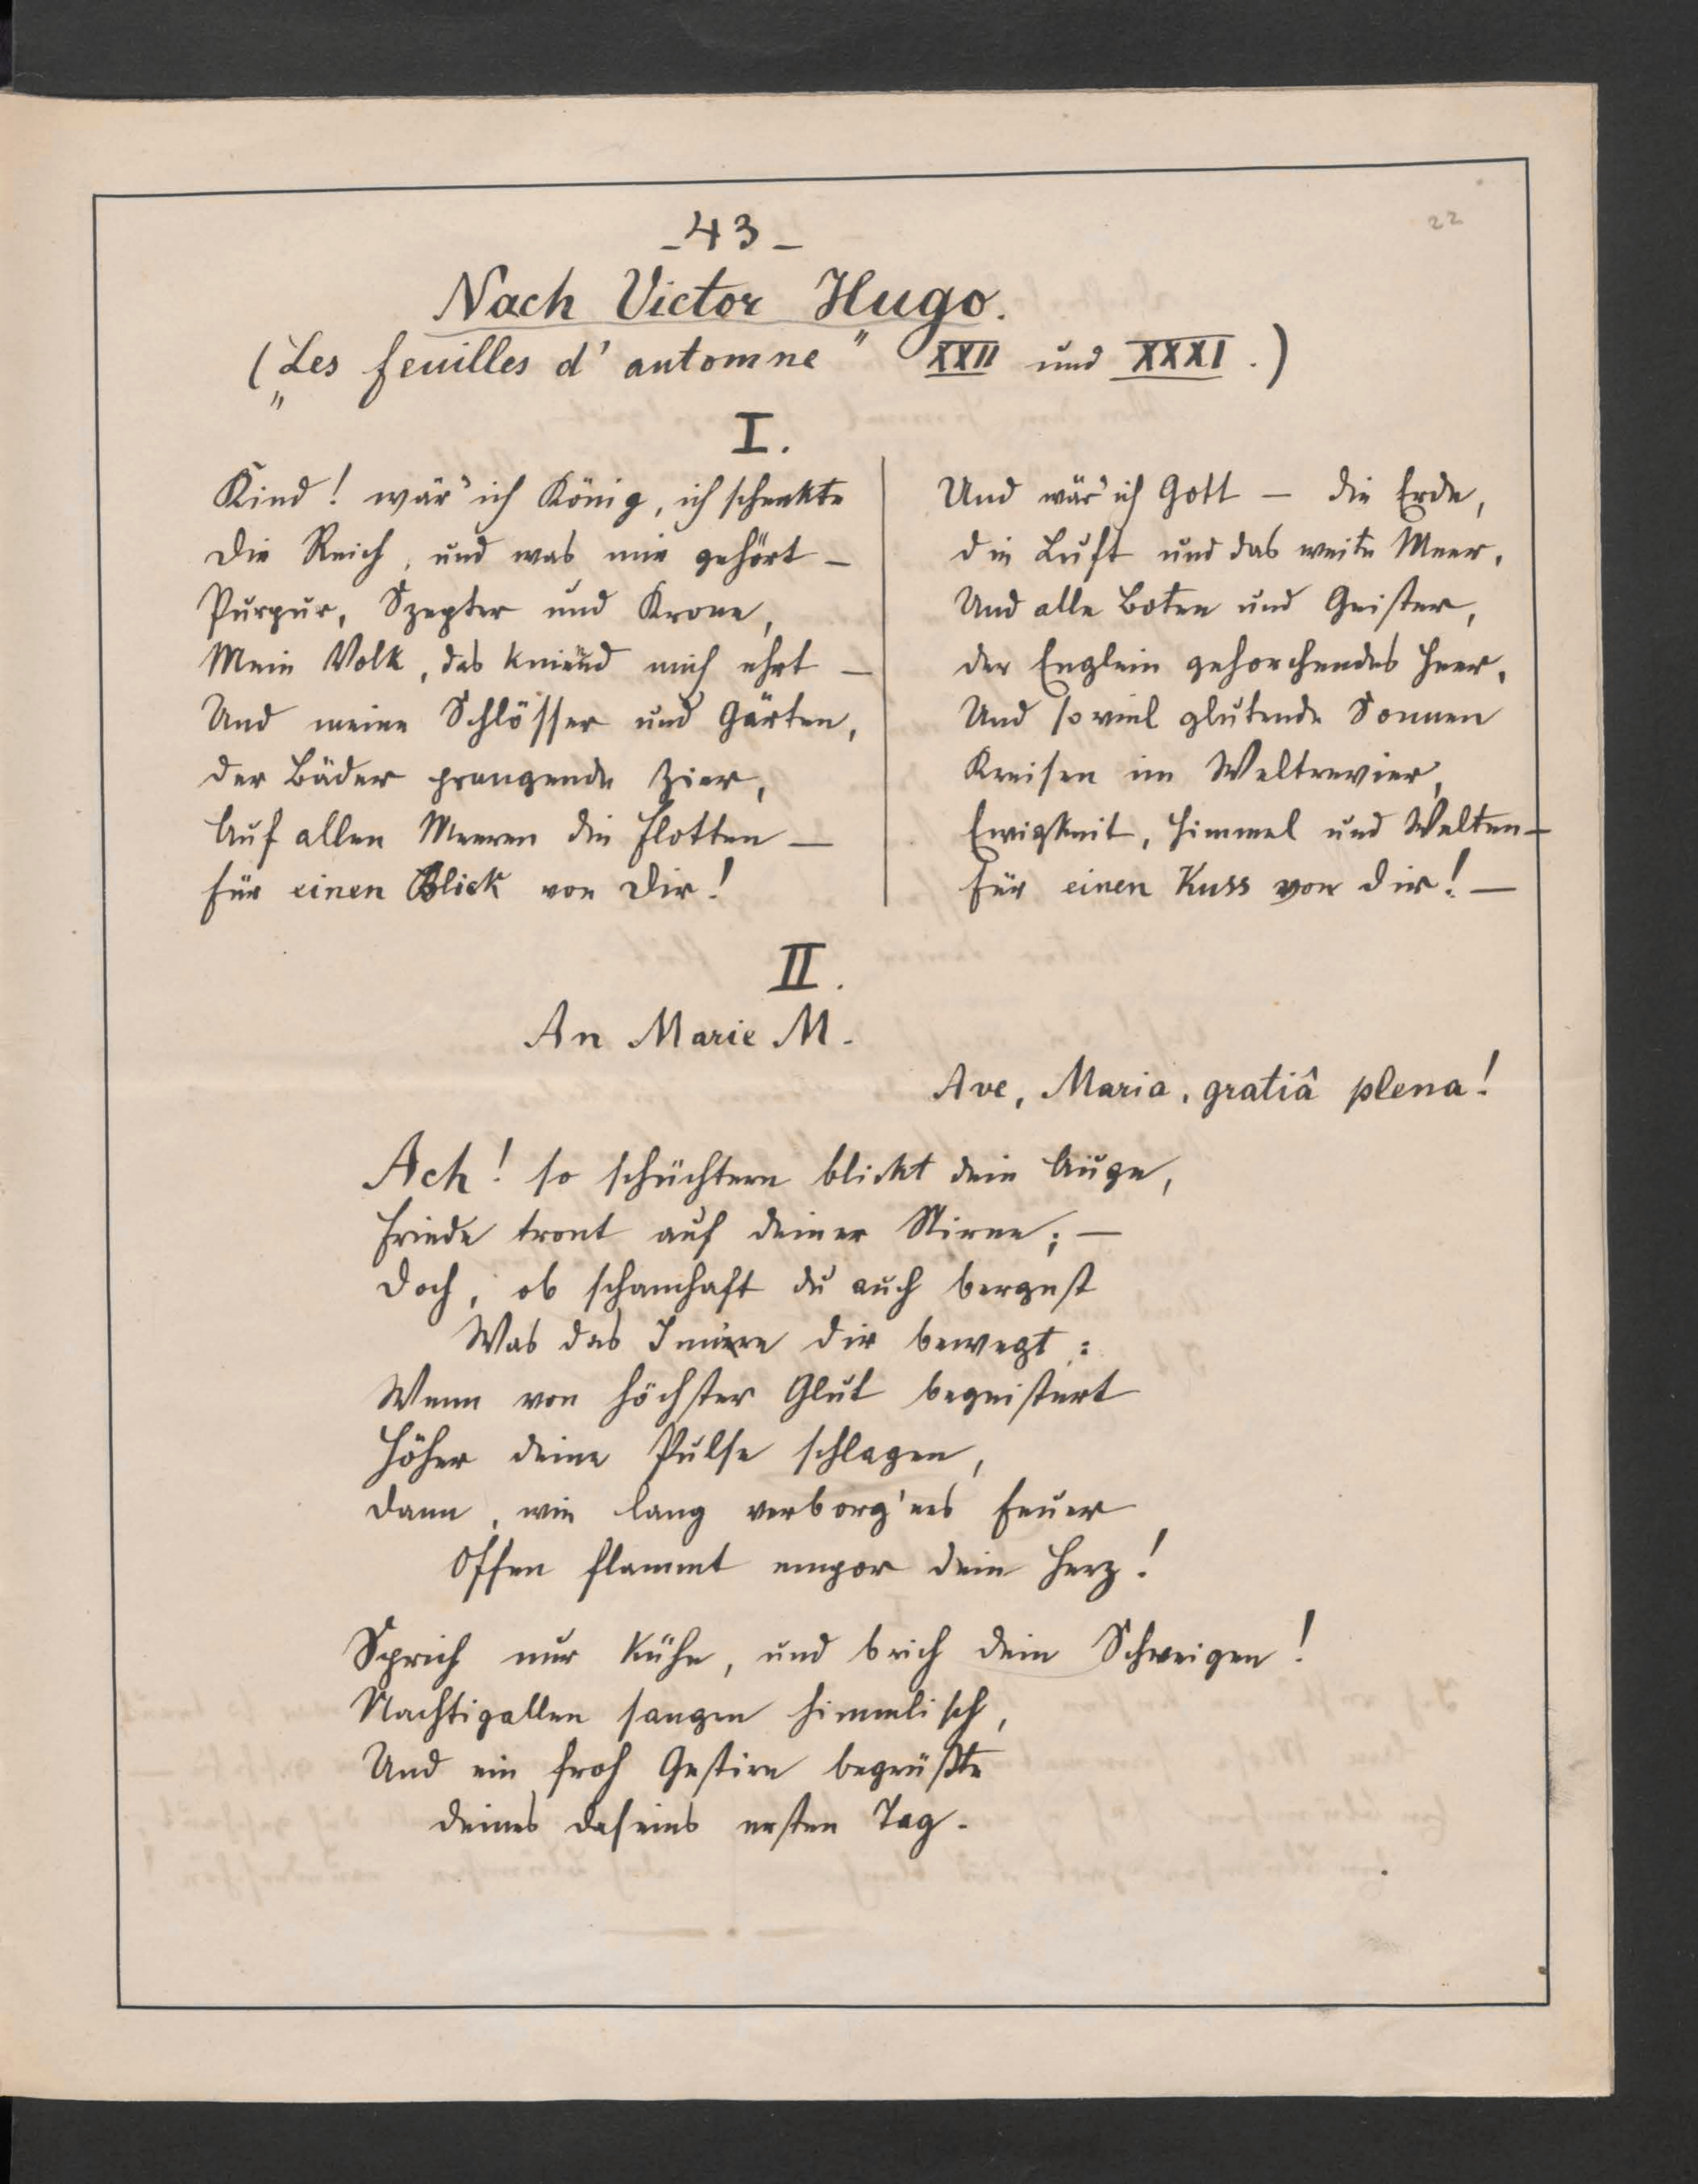 22
-43-
Nach Victor Hugo.
(„Les feuilles d'automne" XXII und XXXI.)
I.
Kind! wär' ich König, ich schenkte
Die Reich, und was mir gehört —
Purpur, Szepter und Krone,
Mein Volk, das kniend mich ehrt —
Und meine Schlösser und Gärten,
Der Bäder prangende Zier,
Auf allen Meeren die Flotten —
Für einen Blick von Dir!
Und wär' ich Gott — die Erde,
Die Luft und das weite Meer,
Und alle Boten und Geister,
Der Englein gehorchendes Heer,
Und so viel glutende Sonnen
Kreisen im Weltrevier,
Ewigkeit, Himmel und Welten —
Für einen Kuss von dir! —
II.
An Marie M.
Ave, Maria, gratiâ plena!
Ach! so schüchtern blickt dein Auge,
Friede tront auf deiner Stirne; —
Doch, ob schamhaft du auch bergest
Was das Innere dir bewegt:
Wenn von höchster Glut begeistert
Höher deine Pulse schlagen,
Dann, wie lang verborg'nes Feuer
Offen flammt empor dein Herz!
Sprich nur kühn, und brich dein Schweigen!
Nachtigallen sangen himmlisch,
Und ein froh Gestirn begrüßte
Deines Daseins ersten Tag.